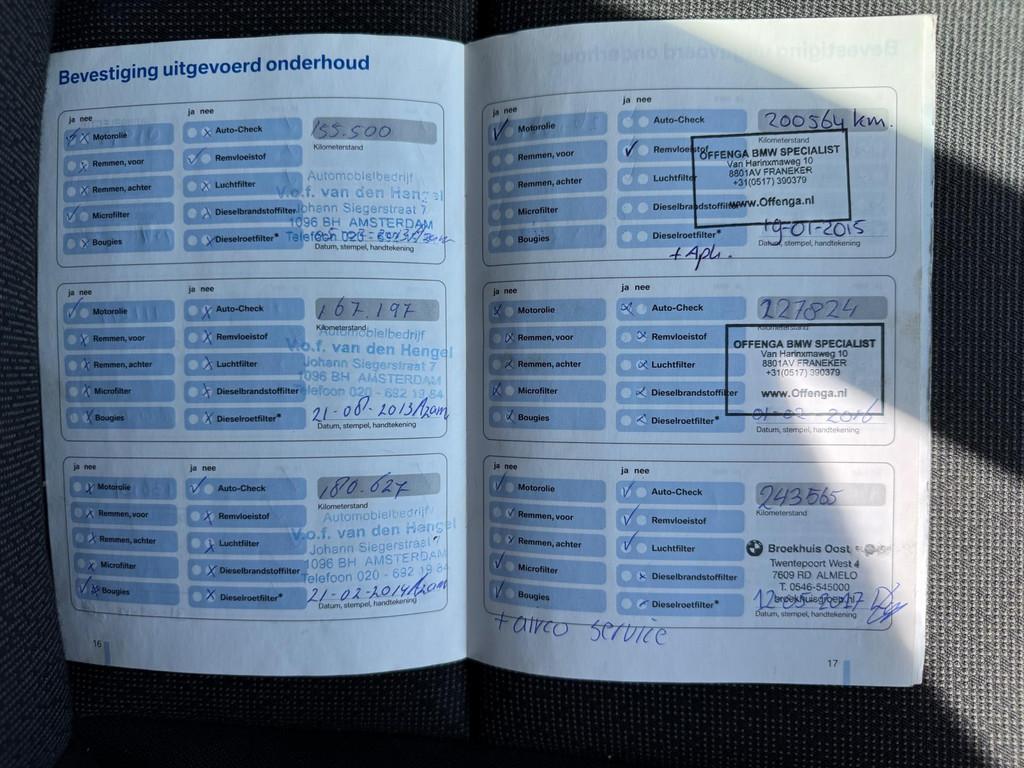 Bevestiging uitgevoerd onderhoud
ja nee
Motorolie
Remmen, voor
Remmen, achter
Microfilter
Bougies
ja nee
Auto-Check
Remvloeistof
Luchtfilter
Dieselbrandstoffilter
Dieselroetfilter*
155.500
Kilometerstand
Automobielbedrijf
V.o.f. van den Hengel
Johann Siegerstraat 7
1096 BH AMSTERDAM
Telefoon 020 - 692
Datum, stempel, handtekening
ja nee
Motorolie
Remmen, voor
Remmen, achter
Microfilter
Bougies
ja nee
Auto-Check
Remvloeistof
Luchtfilter
Dieselbrandstoffilter
Dieselroetfilter*
167.197
Kilometerstand
Automobielbedrijf
V.o.f. van den Hengel
Johann Siegerstraat 7
1096 BH AMSTERDAM
Telefoon 020 - 692 19 84
21-08-2013
Datum, stempel, handtekening
ja nee
Motorolie
Remmen, voor
Remmen, achter
Microfilter
Bougies
ja nee
Auto-Check
Remvloeistof
Luchtfilter
Dieselbrandstoffilter
Dieselroetfilter*
180.627
Kilometerstand
Automobielbedrijf
V.o.f. van den Hengel
Johann Siegerstraat 7
1096 BH AMSTERDAM
Telefoon 020 - 692 19 84
21-02-2014
Datum, stempel, handtekening
16
ja nee
Motorolie
Remmen, voor
Remmen, achter
Microfilter
Bougies
ja nee
Auto-Check
Remvloeistof
Luchtfilter
Dieselbrandstoffilter
Dieselroetfilter*
200564 km.
Kilometerstand
OFFENGA BMW SPECIALIST
Van Harinxmaweg 10
8801AV FRANEKER
+31(0517) 390379
www.Offenga.nl
19-01-2015
Datum, stempel, handtekening
+ Apk.
ja nee
Motorolie
Remmen, voor
Remmen, achter
Microfilter
Bougies
ja nee
Auto-Check
Remvloeistof
Luchtfilter
Dieselbrandstoffilter
Dieselroetfilter*
227824
Kilometerstand
OFFENGA BMW SPECIALIST
Van Harinxmaweg 10
8801AV FRANEKER
+31(0517) 390379
www.Offenga.nl
01-02-2016
Datum, stempel, handtekening
ja nee
Motorolie
Remmen, voor
Remmen, achter
Microfilter
Bougies
ja nee
Auto-Check
Remvloeistof
Luchtfilter
Dieselbrandstoffilter
Dieselroetfilter*
243565
Kilometerstand
Broekhuis Oost
Twentepoort West 4
7609 RD ALMELO
T. 0546-545000
broekhuisgroep.nl
12-05-2017
Datum, stempel, handtekening
+ airco service
17